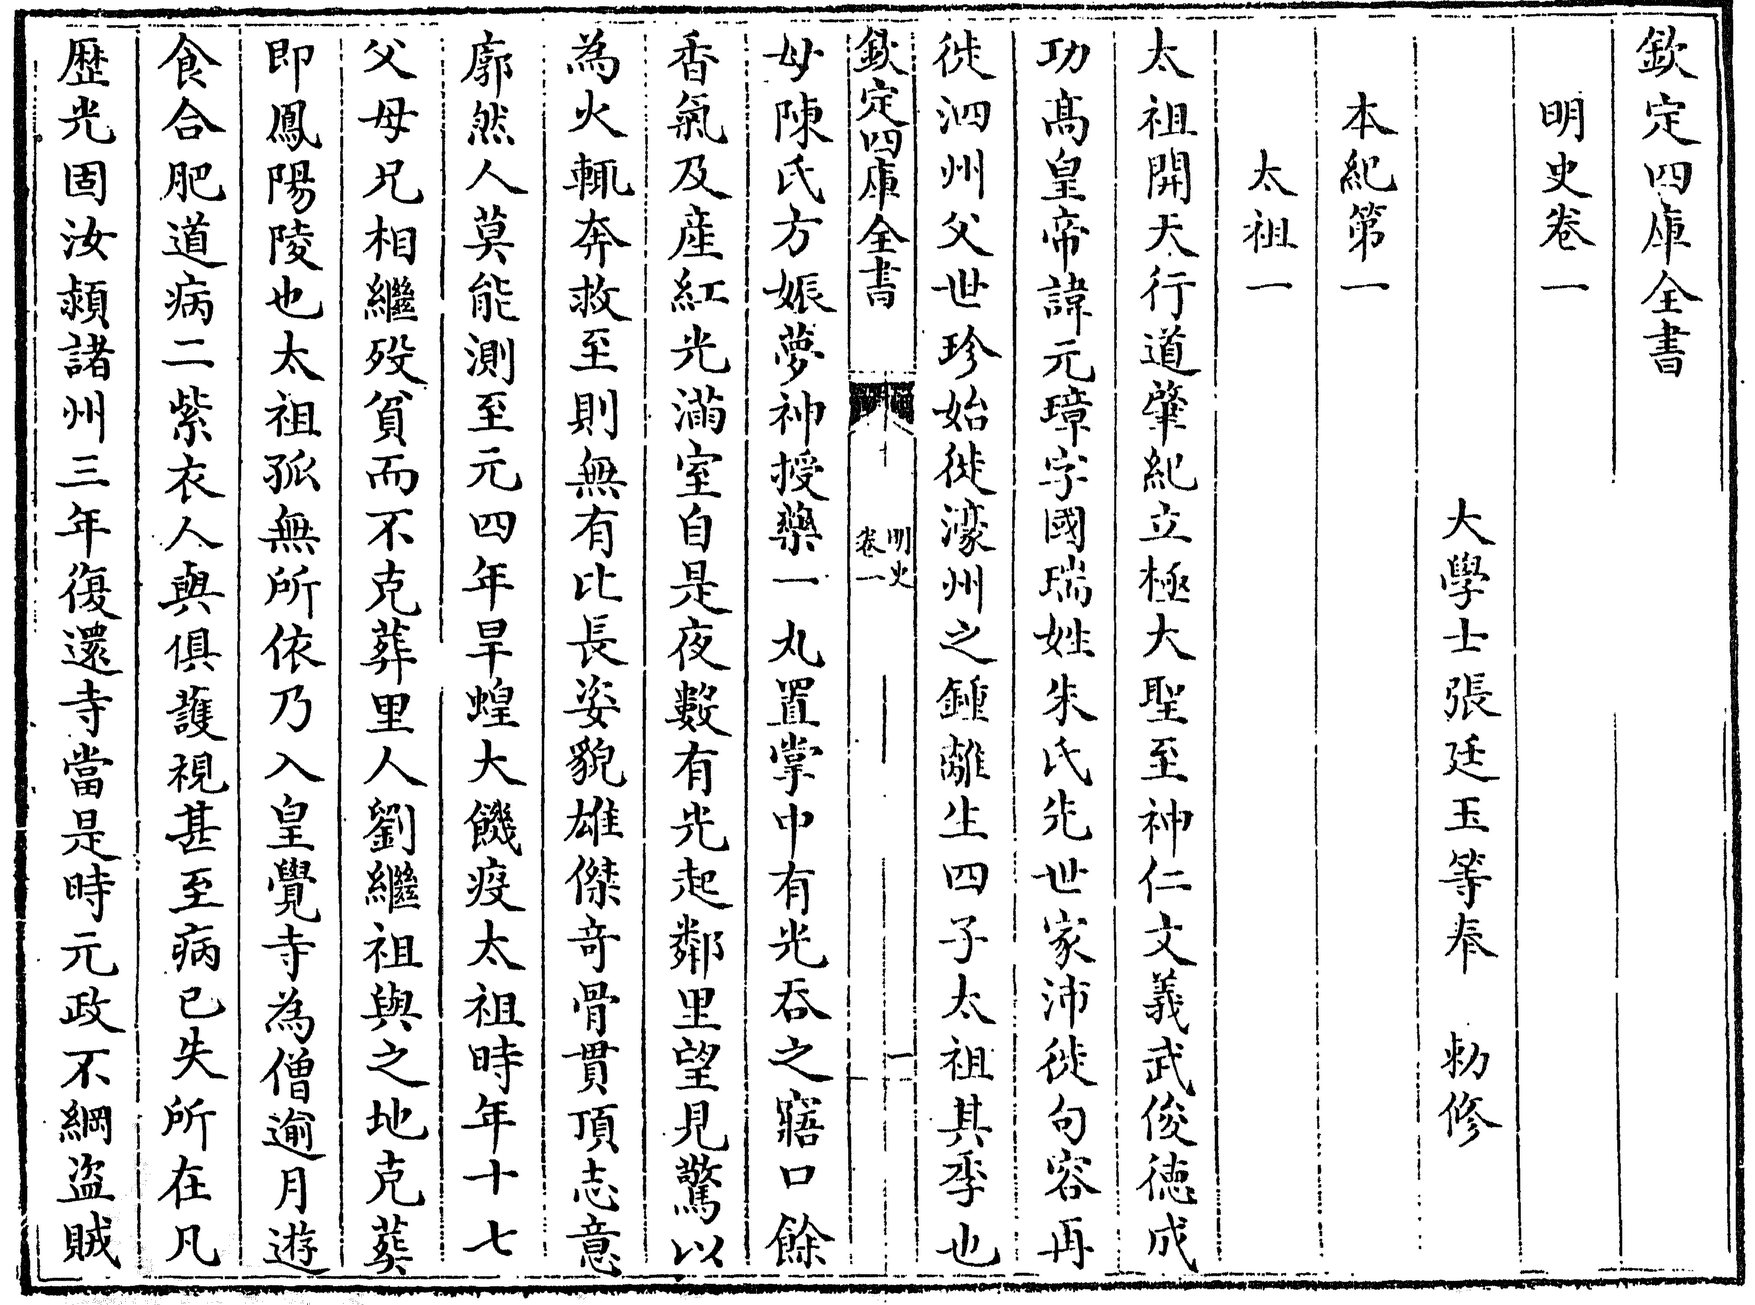 欽定四庫全書
明史卷一
大學士張廷玉等奉 勅修
本紀第一
太祖一
太祖開天行道肇紀立極大聖至神仁文義武俊徳成
功髙皇帝諱元璋字國瑞姓朱氏先世家沛徙句容再
徙泗州父世珍始徙濠州之鍾離生四子太祖其季也
欽定四庫全書
明史
卷一
一
母陳氏方娠夢神授藥一丸置掌中有光吞之寤口餘
香氣及産紅光滿室自是夜數有光起鄰里望見驚以
為火輒奔救至則無有比長姿貌雄傑竒骨貫頂志意
廓然人莫能測至元四年旱蝗大饑疫太祖時年十七
父母兄相繼殁貧而不克葬里人劉繼祖與之地克葬
即鳳陽陵也太祖孤無所依乃入皇覺寺為僧逾月遊
食合肥道病二紫衣人與俱護視甚至病已失所在凡
歴光固汝潁諸州三年復還寺當是時元政不綱盜賊